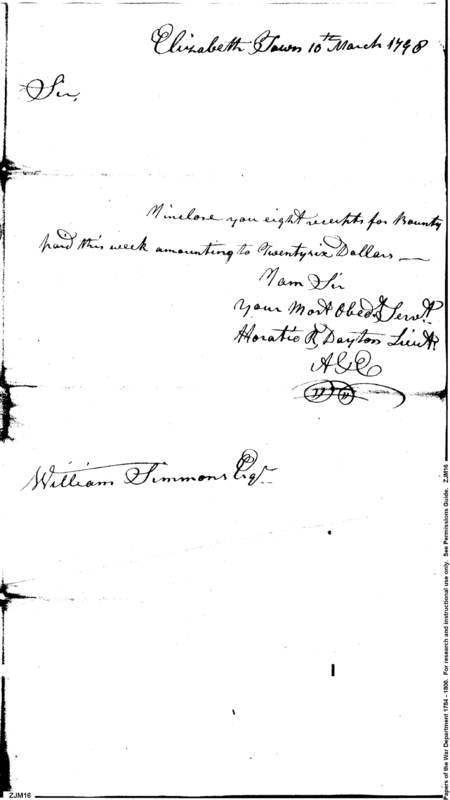 Elizabeth Town 10th March 1798
Sir,
I inclose you eight receipts for Bounty
paid this week amounting to Twentysix Dollars —
I am Sir
Your Most Obedt Servt
Horatio R Dayton Lieut
William Simmons Esqr
Papers of the War Department 1784 - 1800. For research and instructional use only. See Permissions Guide. ZJM16
ZJM16